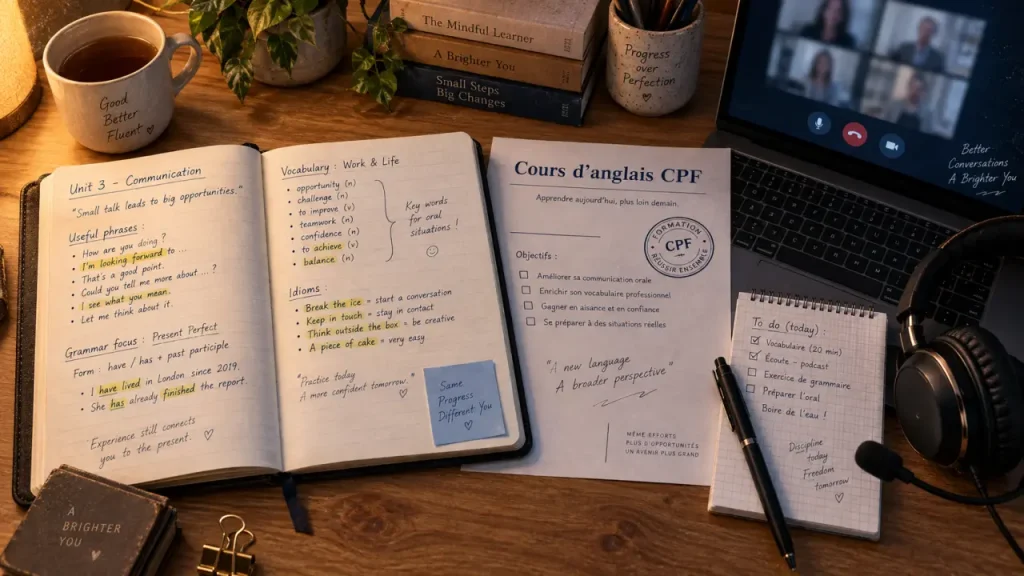 Good
Better
Fluent ♡
The Mindful Learner
A Brighter You
Small Steps
Big Changes
Progress
over
Perfection
♡
Better
Conversations
A Brighter You
Unit 3 - Communication
"Small talk leads to big opportunities."
Useful phrases :
• How are you doing ?
• I'm looking forward to ...
• That's a good point.
• Could you tell me more about ... ?
• I see what you mean.
• Let me think about it.
Grammar focus : Present Perfect
Form : have / has + past participle
• I have lived in London since 2019.
• She has already finished the report.
Experience still connects
you to the present. ♡
Vocabulary : Work & Life
• opportunity (n)
• challenge (n)
• to improve (v)
• teamwork (n)
• confidence (n)
• to achieve (v)
• balance (n)
Key words
for oral
situations !
Idioms :
• Break the ice = start a conversation
• Keep in touch = stay in contact
• Think outside the box = be creative
• A piece of cake = very easy
"Practice today
A more confident tomorrow." ♡
Same
Progress
Different You
♡
Cours d'anglais CPF
Apprendre aujourd'hui, plus loin demain.
FORMATION
CPF
RÉUSSIR ENSEMBLE
Objectifs :
Améliorer sa communication orale
Enrichir son vocabulaire professionnel
Gagner en aisance et en confiance
Se préparer à des situations réelles
"A new language
A broader perspective"
MÊME EFFORTS
PLUS D'OPPORTUNITÉS
UN AVENIR PLUS GRAND
To do (today) :
Vocabulaire (20 min)
Écoute - podcast
Exercice de grammaire
Préparer l'oral
Boire de l'eau !
Discipline
today
Freedom
tomorrow
♡
A
BRIGHTER
YOU ♡